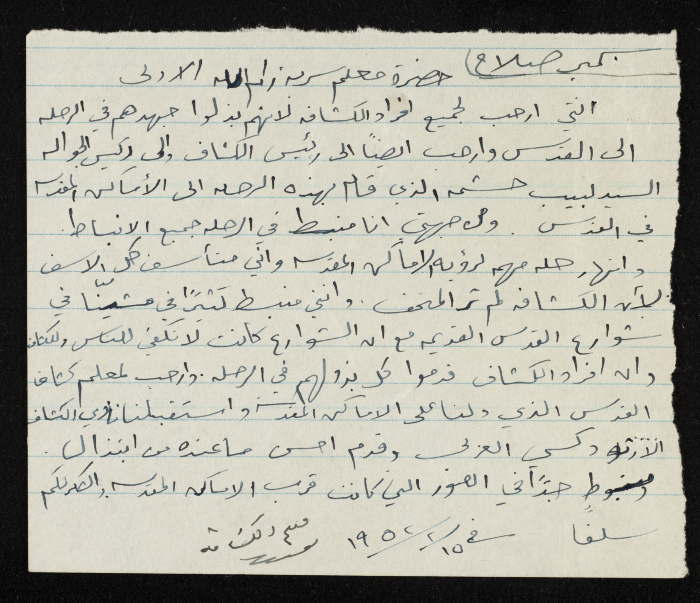 سمير صلاح
حضرة معلم سرية رام الله الاولى
انني ارحب لجميع افراد الكشافه لانهم بذلوا جهدهم في الرحله
الى القدس وارحب ايضاً الى رئيس الكشاف والى رئيس الجواله
السيد لبيب حشمه الذي قام بهذه الرحله الى الأماكن المقدسه
في القدس . ومن جهتي انا منبسط في الرحله جميع الانبساط.
وانها رحله مهمه لرؤية الاماكن المقدسه واني متأسف كل الاسف
لأن الكشافه لم تر المتحف . وانني منبسط كثيرًا في مشينا في
شوارع القدس القديمه مع ان الشوارع كانت لا تكفي للناس وللكشاف
وان افراد الكشاف قدموا كل بذولهم في الرحله. وارحب لمعلم كشاف
القدس الذي دلنا على الاماكن المقدسه واستقبلنا نادي الكشاف
الارثو دكسي العربي وقدم احسن ما عنده من ابتذال .
ومبسوط جدًا في الصور التي كانت قرب الاماكن المقدسه. والشكر لكم
سلفا في ١٥/٢/١٩٥٢